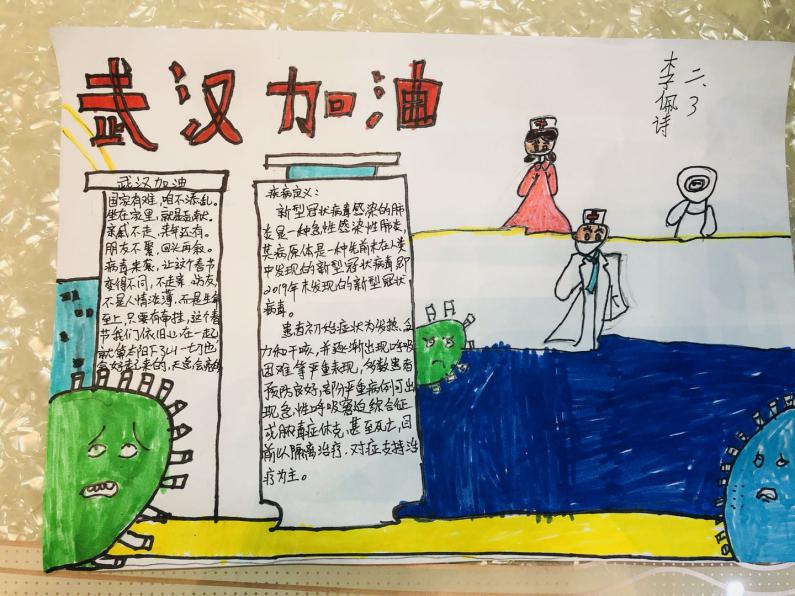 武汉加油
二、3
李佩诗
武汉加油
国家有难,咱不添乱。
坐在家里,就是贡献。
亲戚不走,来年还有。
朋友不聚,回头再叙。
病毒来袭,让这个春节
变得不同,不走亲访友,
不是人情淡薄,而是生命
至上,只要有牵挂,这个春
节我们依旧心在一起
会好起来的,
疾病定义:
新型冠状病毒感染的肺
炎是一种急性感染性肺炎,
其病原体是一种先前未在人类
中发现的新型冠状病毒,即
2019年末发现的新型冠状
病毒。
患者初始症状为发热、乏
力和干咳,并逐渐出现呼吸
困难等严重表现,多数患者
预防良好,部分严重病例可出
现急性呼吸窘迫综合征
或脓毒症休克,甚至死亡,目
前以隔离治疗、对症支持治
疗为主。